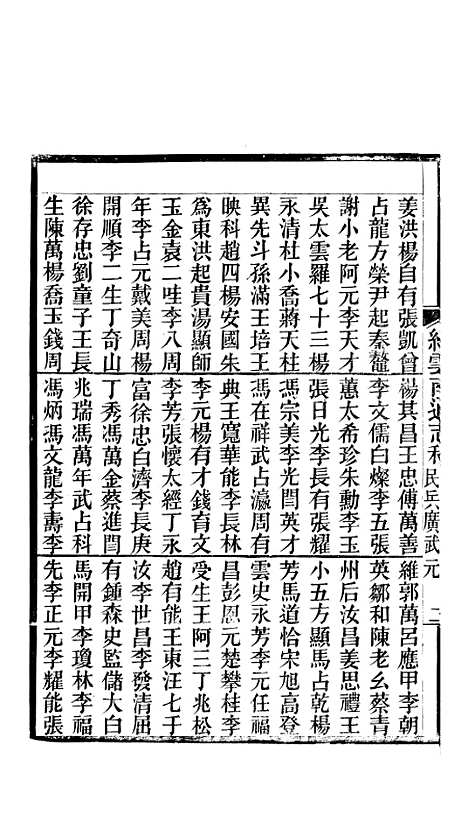 姜洪楊自有張凱曾
占龍方榮尹起秦鼇
謝小老阿元李天才
吳太雲羅七十三楊
永清杜小喬蔣天柱
異先斗孫滿王培王
映科趙四楊安國朱
為東洪起貴湯顯師
玉金袁二哇李八周
年李占元戴美周楊
開順李二生丁奇山
徐存忠劉童子王長
生陳萬楊喬玉錢周
楊其昌王忠傅萬善
李文儒白燦李五張
蕙太希珍朱勳李玉
張日光李長有張耀
馮宗美李光閆英才
馮在祥武占瀛周有
典王寬華能李長林
李元楊有才錢育文
李芳張懷太經丁永
富徐忠白濟李長庚
丁秀馮萬金蔡進閆
兆瑞馮萬年武占科
馮炳馮文龍李壽李
維郭萬呂應甲李朝
英鄒和陳老么蔡青
州后汝昌姜思禮王
小五方顯馬占乾楊
芳馬道恰宋旭高登
雲史永芳李元任楊
昌彭恩元楚攀桂李
受生王阿三丁兆松
趙有能王東汪七于
汝李世昌李發清屈
有鍾森史監儲大白
馬開甲李瓊林李福
先李正元李耀能張
雲南通志稿 民兵廣武元 二